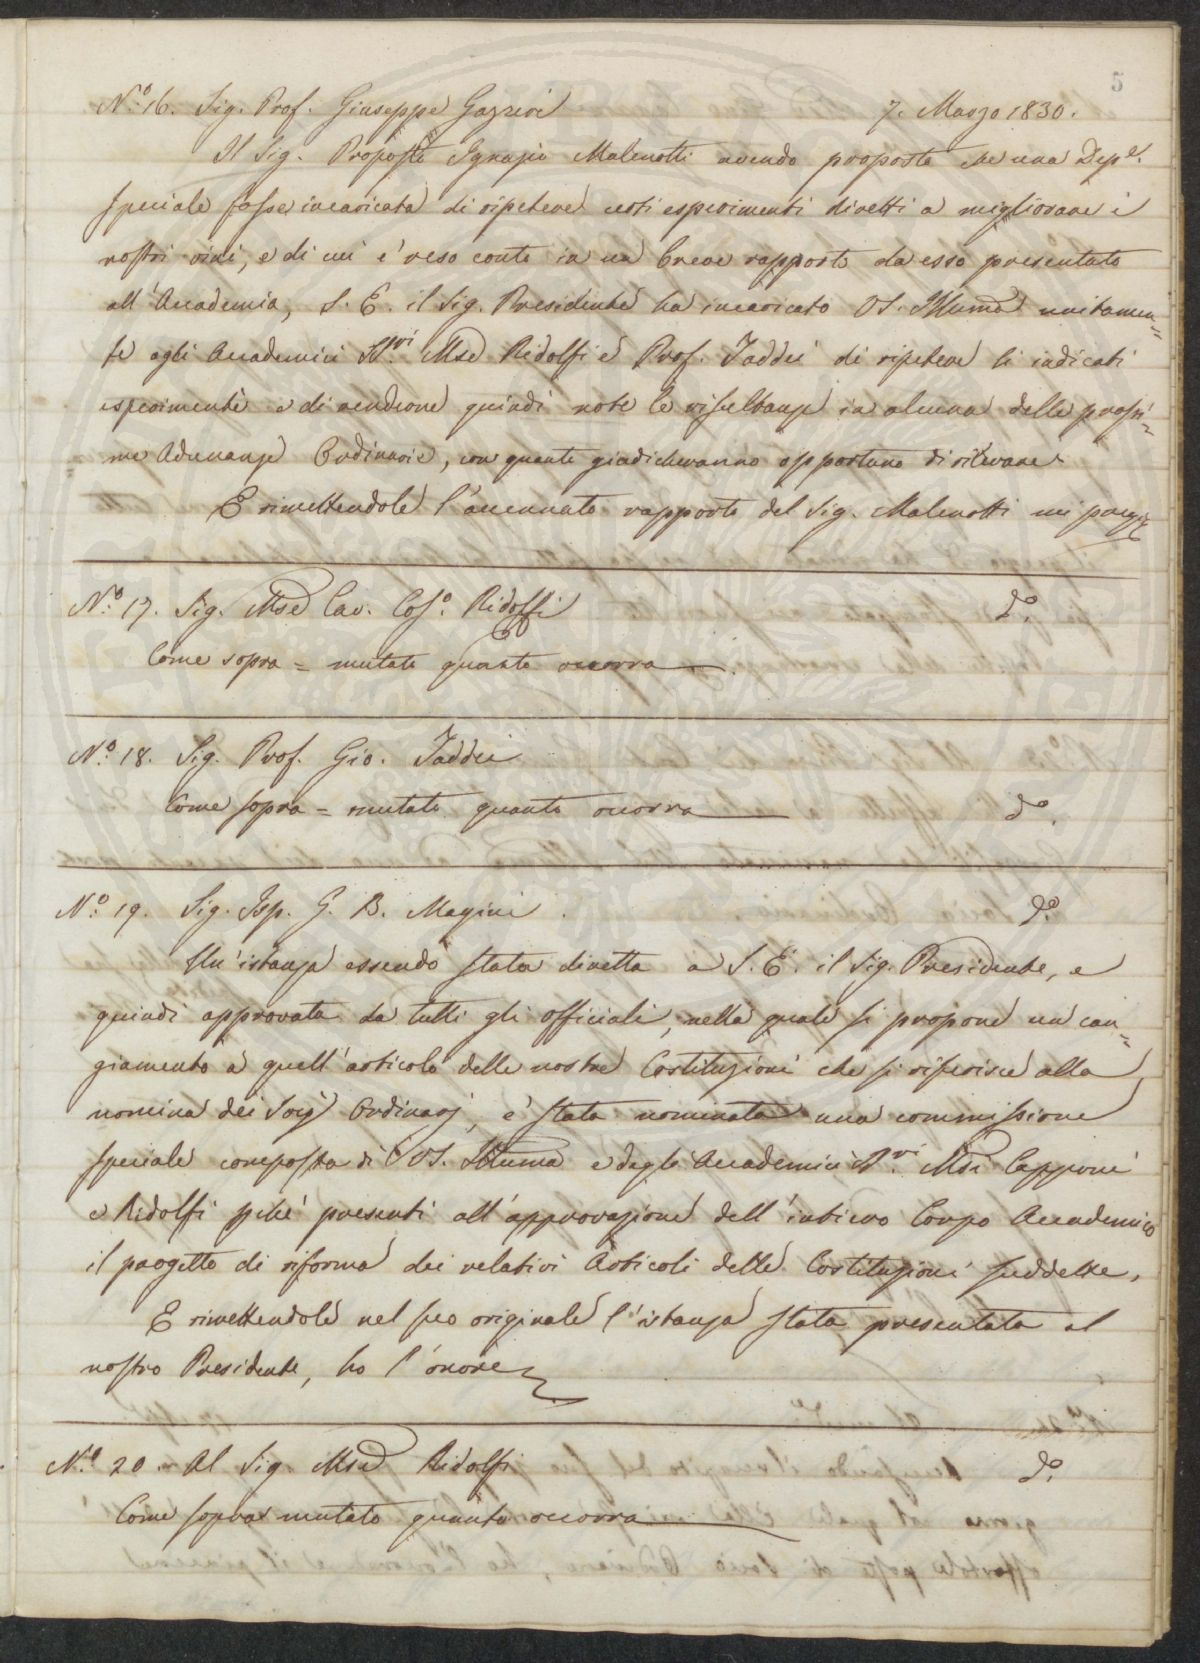 5
N.º 16. Sig. Prof. Giuseppe Gazzeri 7. Marzo 1830.
Il Sig. Proposto Ignazio Malenotti avendo proposto che una Dep.e
speciale fosse incaricata di ripetere certi esperimenti diretti a migliorare i
nostri vini, e di cui è reso conto in un breve rapporto da esso presentato
all'Accademia, S. E. il Sig. Presidente ha incaricato VS. Illuma unitamen=
te agli Accademici SS.ri Mse Ridolfi e Prof. Taddei di ripetere li indicati
esperimenti e di renderne quindi note le risultanze in alcuna delle prossi=
me Adunanze Ordinarie, con quanto giudicheranno opportuno di rilevare
E rimettendole l'accennato rapporto del Sig. Malenotti mi pregio
N.º 17. Sig. Mse Cav. Cos.º Ridolfi d.º
Come sopra = mutato quanto occorra
N.º 18. Sig. Prof. Gio. Taddei
Come sopra = mutato quanto occorra d.º
N.º 19. Sig. Isp. G. B. Magini d.º
Un'istanza essendo stata diretta a S. E. il Sig. Presidente, e
quindi approvata da tutti gli officiali, nella quale si propone un can=
giamento a quell'articolo delle nostre Costituzioni che si riferisce alla
nomina dei Socj Ordinarj, è stata nominata una commissione
speciale composta di VS. Illuma e degli Accademici SS.ri Msi Capponi
e Ridolfi pchè presenti all'approvazione dell'intiero Corpo Accademico
il progetto di riforma dei relativi Articoli delle Costituzioni suddette.
E rimettendole nel suo originale l'istanza stata presentata al
nostro Presidente, ho l'onore
N.º 20. Al Sig. Mse Ridolfi d.º
Come sopra mutato quanto occorra